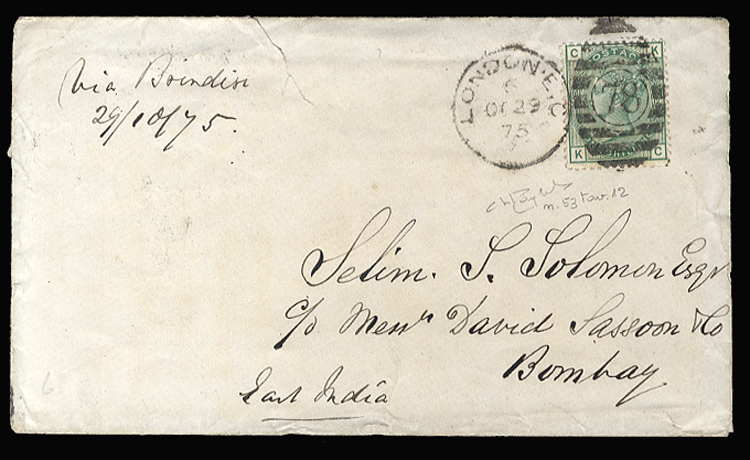 via Brindisi
29/10/75.
LONDON·E.C
6
OC 29
75
C K
POSTAGE
78
K C
n. 53 tav. 12
Selim. S. Solomon Esqr
c/o Messrs David Sassoon & Co
Bombay
East India
6